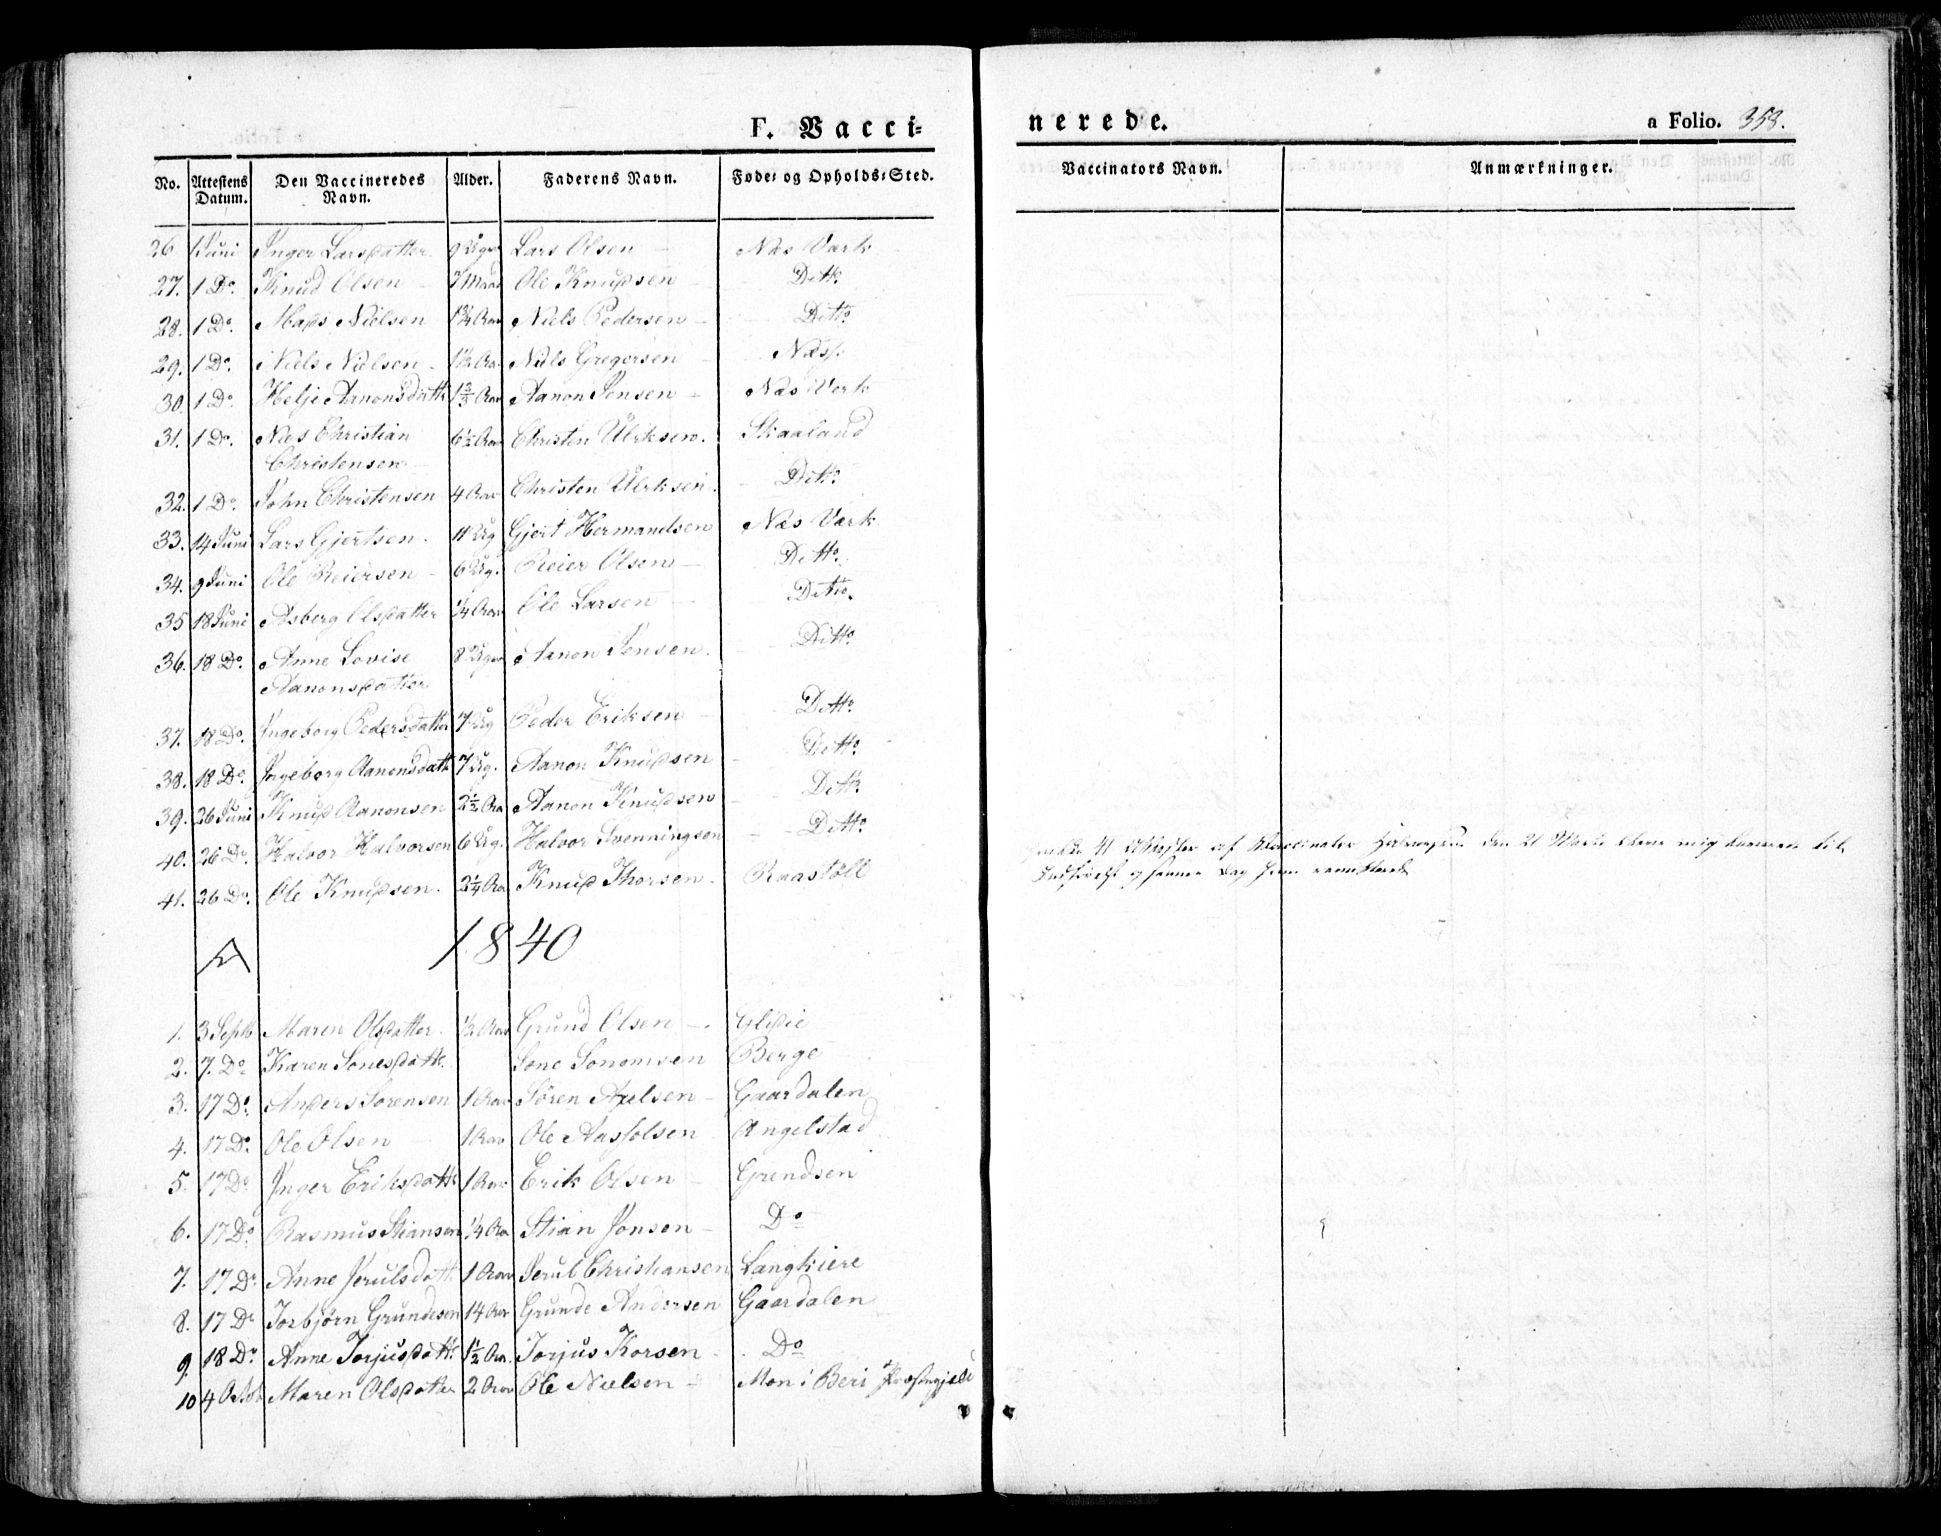 F. Vacci=
nerede.
a Folio. 358.
No. Attestens Datum. Den Vaccineredes Navn. Alder. Faderens Navn. Føde= og Opholds=Sted. Vaccinators Navn. Anmærkninger.
26 1 Juni Inger Larsdatter 9 Uger Lars Olsen Næs Værk
27. 1 Do. Knud Olsen Ole Knudsen Ditto
28. 1 Do. Mads Nielsen 1¾ Aar Niels Pedersen Ditto
29. 1 Do. Niels Nielsen 1½ Aar Niels Gregersen Næss.
30. 1 Do. Helje Aanonsdatt 1⅔ Aar Aanon Jensen Næs Verk
31. 1 Do. Niels Christian 6½ Aar Christen Ulrksen. Skaaland
Christensen
32. 1 Do. John Christensen 4 Aar Christen Ulrksen. Ditto
33. 14 Juni Lars Gjertsen. 11 Ug Gjert Hermandsen Næs Værk
34. 9 Juni Ole Reiersen 6 Ug. Reier Olsen Ditto.
35 18 Juni Asberg Olsdatter ¼ Aar Ole Larsen Ditto.
36. 18 Do. Anne Lovise 8 Uger Aanon Jensen. Ditto.
Aanonsdatter
37. 18 Do. Ingeborg Pedersdatter 7 Ug Peder Eriksen Ditto.
38. 18 Do. Ingeborg Aanonsdatt 7 Ug. Aanon Knudsen Ditto.
39. 26 Juni Knud Aanonsen 2½ Aar Aanon Knudsen Ditto.
40. 26 Do. Halvor Halvorsen 6 Ug. Halvor Svenningsen Ditto.
41. 26 Do. Ole Knudsen. 2¼ Aar Knud Thorsen Raastöll
41 af Vaccinatør den 21 mig til
og samme Dag
1840
1. 3 Septb Maren Olsdatter. ½ Aar Grund Olsen Glidie
2. 7. Do Karen Sonesdatt. Sone Sonomsen Berge
3. 17 Do. Anders Sørensen 1 Aar Søren Axelsen Gaardalen
4. 17 Do. Ole Olsen 1 Aar Ole Aasfolsen Angelstad
5. 17 Do. Inger Eriksdatt 1 Aar Erik Olsen Grendsen
6. 17 Do. Rasmus Stiansen ¼ Aar Stian Jonsen Do
7. 17 Do. Anne Jerulsdatt 1 Aar Jerul Christiansen Langkiere
8. 17 Do Torbjörn Grundesen 14 Aar Grunde Andersen Gaardalen
9. 18 Do. Anne Torjusdatt. 1½ Aar. Torjus Korsen Do
10 4 Octob Maren Olsdatter 2 Aar Ole Nielsen Mon i Beri Præstegjeld